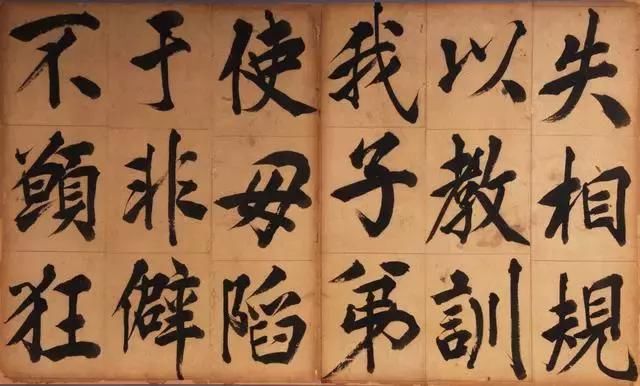 失相規
以教訓
我子弟
使毋陷
于非僻
不狂